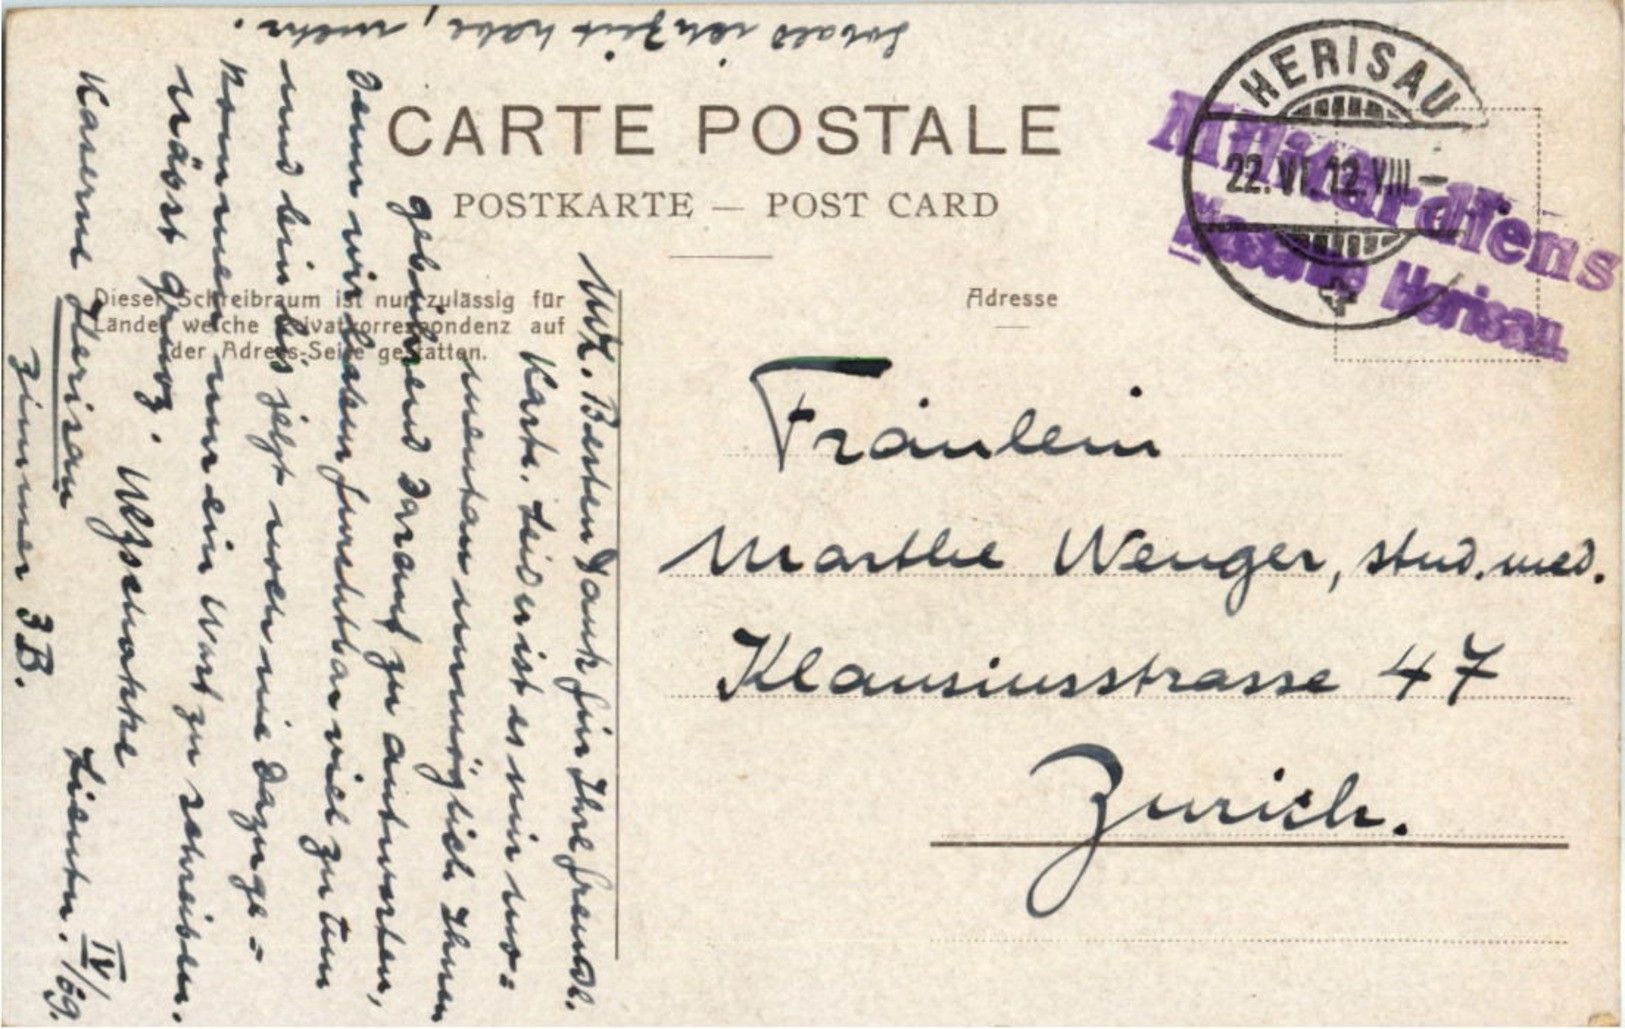 CARTE POSTALE
POSTKARTE — POST CARD
Dieser Schreibraum ist nur zulässig für
Länder welche Privatkorrespondenz auf
der Adress-Seite gestatten.
Adresse
HERISAU
22. VI. 12. VIII —
Militärdiens
Kaserne Herisau.
Fräulein
Marthe Wenger, stud. med.
Klausiusstrasse 47
Zürich.
Besten Dank für Ihre freundl.
Karte. Leider ist es mir mo=
mentan unmöglich Ihnen
gebührend darauf zu antworten,
denn wir haben furchtbar viel zu tun
und bin bis jetzt noch nie dazuge=
kommen nur ein Wort zu schreiben.
grüsst
Kaserne Herisau
Zimmer 3B.
IV/69.
Sobald ich Zeit habe, mehr.